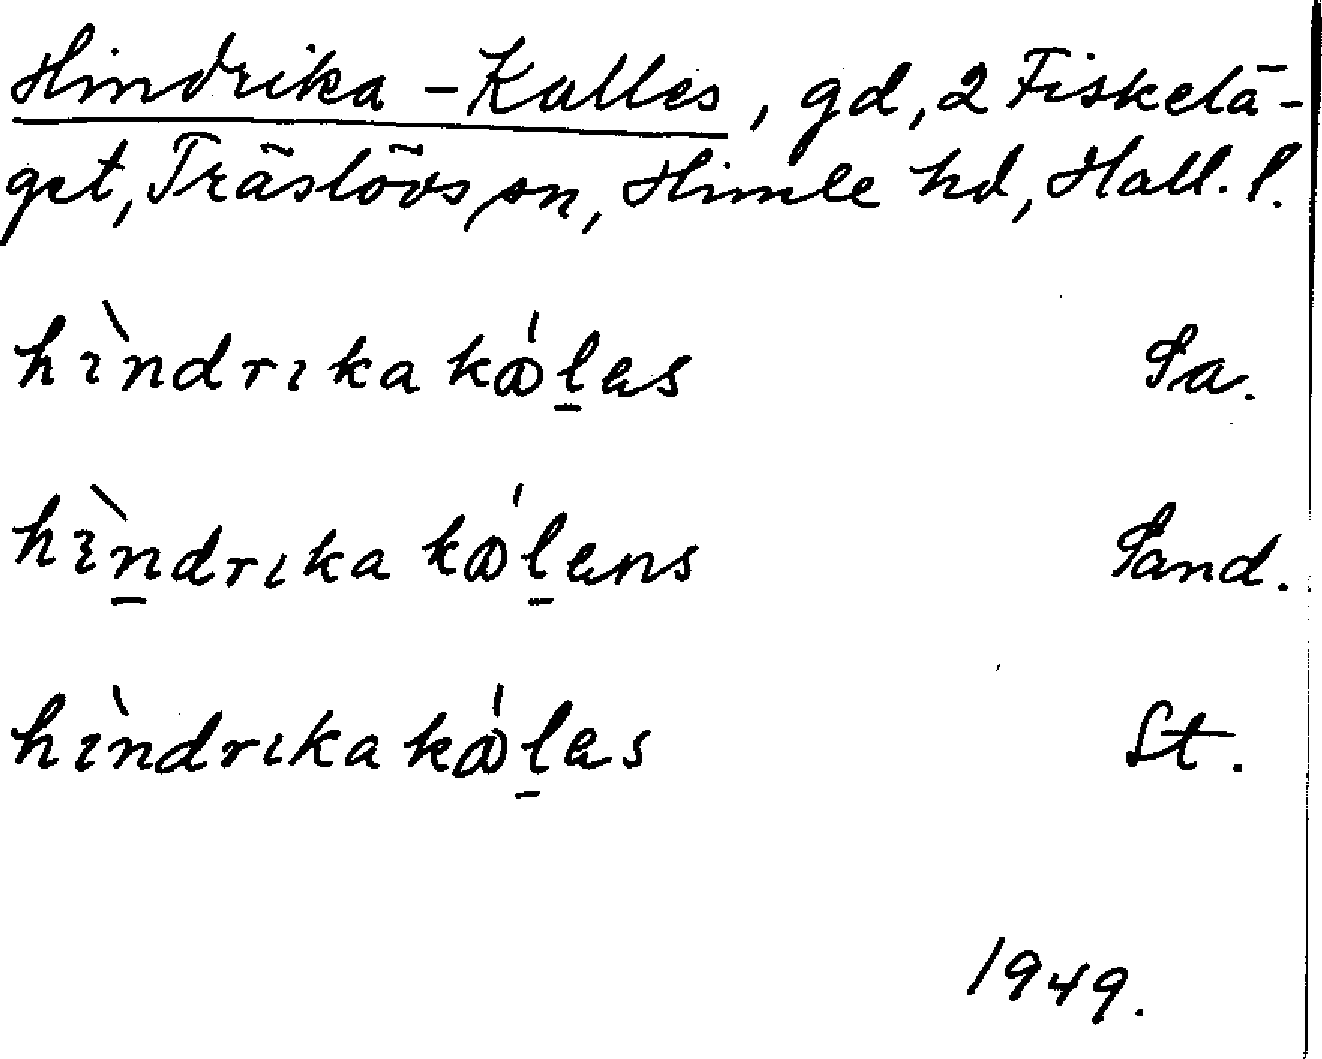 Hindrika-Kalles, gd, 2 Fiskelä-
get, Träslövs sn, Himle hd, Hall. l.
hìndrıkakáḻas Sa.
hìṉdrıkakáḻans Sand.
hìndrıkakáḻas St.
1949.